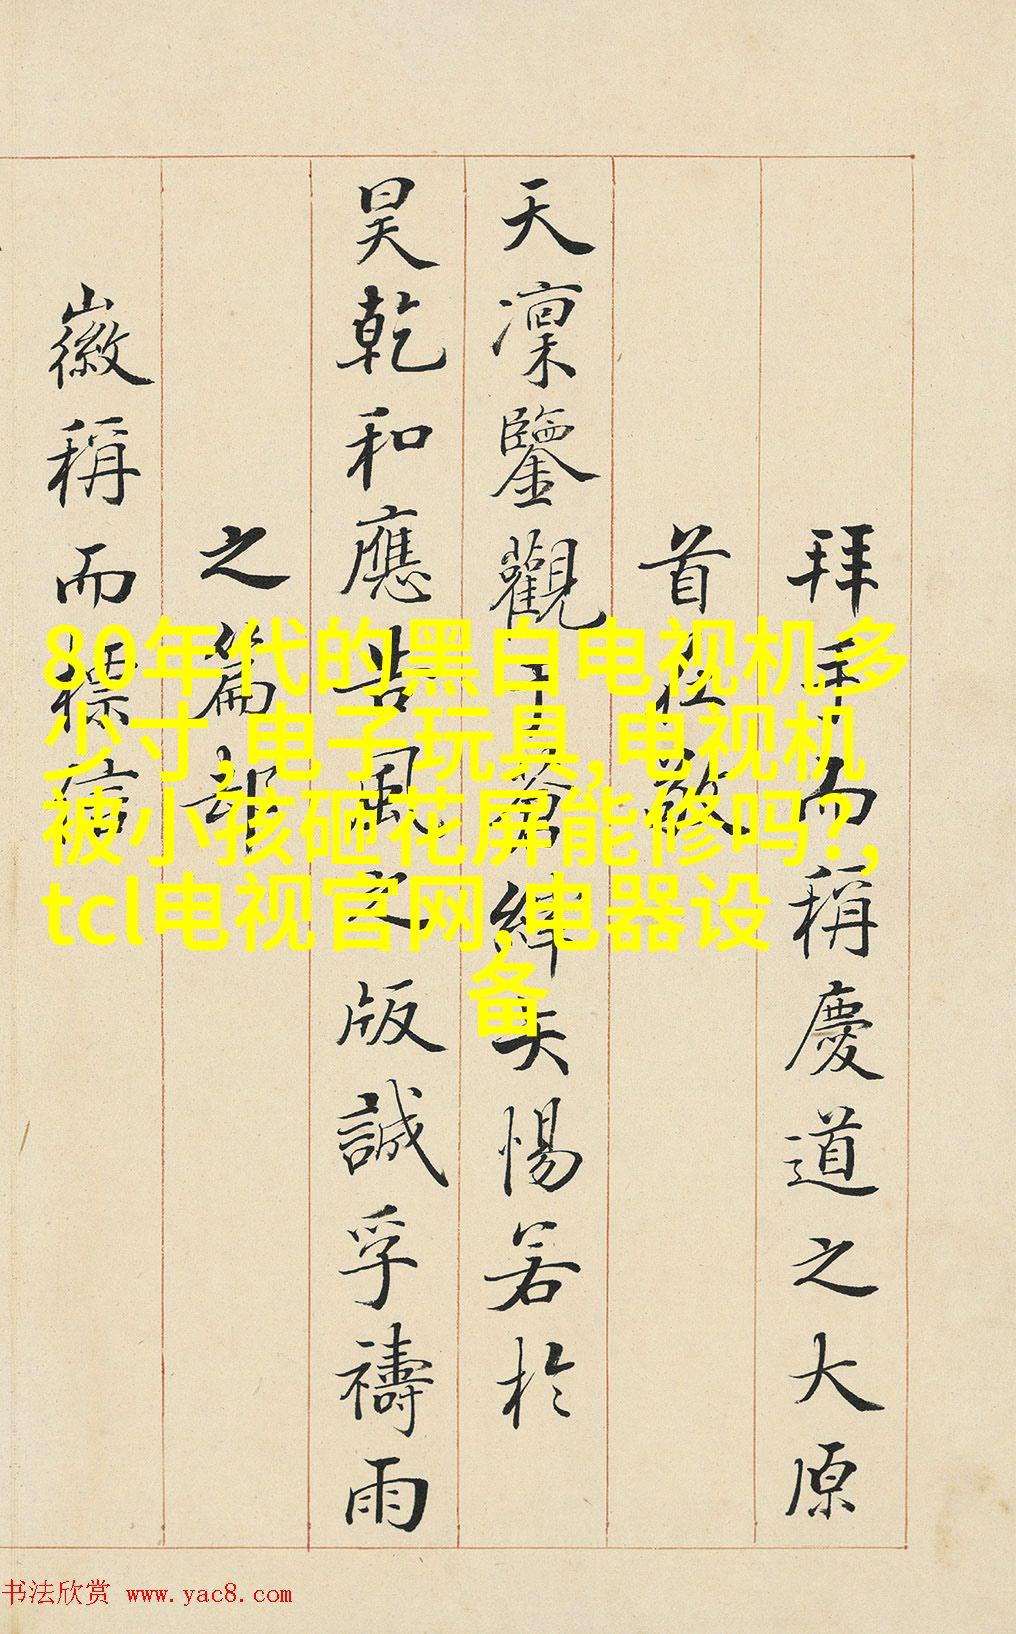 拜手而稱慶道之大原
首在敬
天凜鑒觀于蒼惕若於
昊乾和應占風之版誠孚禱雨
之篇
徽稱而標
80年代的黑白电视机多
少寸,电子玩具,电视机
被小孩砸花屏能修吗?,
tcl电视官网,电器设
备
书法欣赏 www.yac8.com